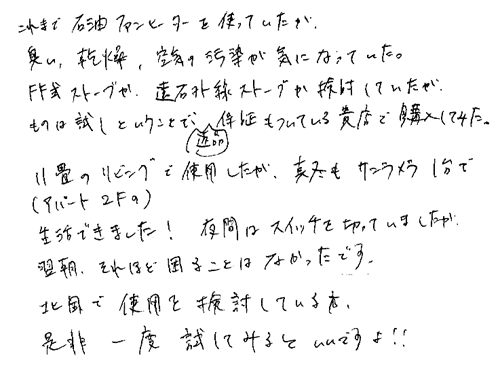 これまで石油ファンヒーターを使っていたが、
臭い、乾燥、空気の汚染が気になっていた。
FF式ストーブか、遠赤外線ストーブか検討していたが
ものは試しということで、返品保証もついている貴店で購入してみた。
11畳のリビングで使用したが、真冬もサンラメラ1台で
(アパート2Fの)
生活できました！ 夜間はスイッチを切っていましたが
翌朝、それほど困ることはなかったです。
北国で使用を検討している方、
是非一度試してみるといいですよ!!